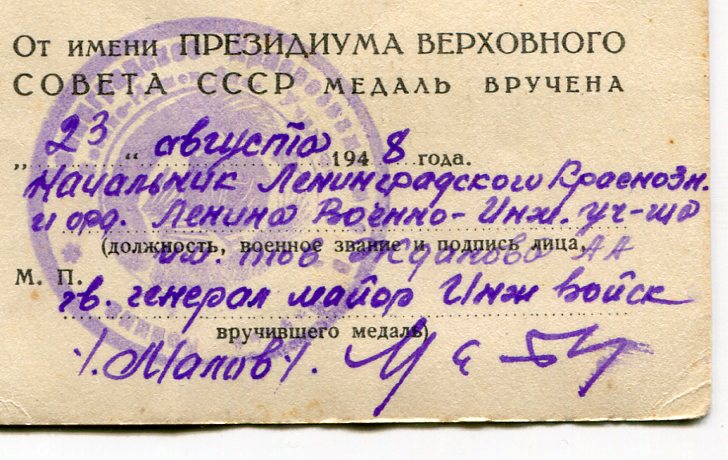 От имени ПРЕЗИДИУМА ВЕРХОВНОГО
СОВЕТА СССР медаль вручена
„23“ августа 1948 года.
Начальник Ленинградского Краснозн.
и орд. Ленина Военно-Инж. уч-ща
(должность, военное звание и подпись лица,
им. тов. Жданова АА
М. П.
гв. генерал майор Инж войск
вручившего медаль)
/Малов/.